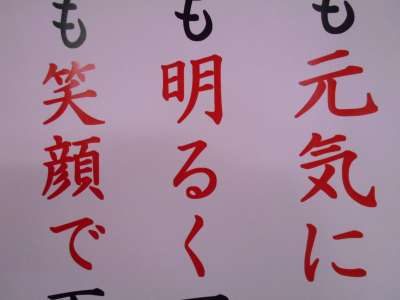 も元気に
も明るく
も笑顔で